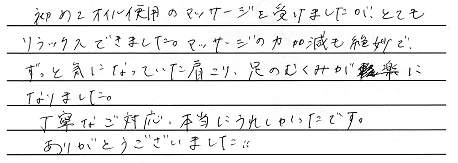 初めてオイル使用のマッサージを受けましたが、とても
リラックスできました。マッサージの力加減も絶妙で、
ずっと気になっていた肩こり、足のむくみが楽に
なりました。
丁寧なご対応、本当にうれしかったです。
ありがとうございました!!